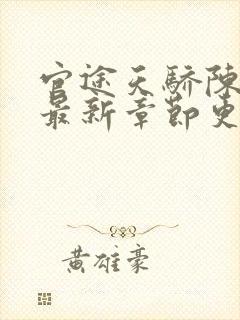 官途天骄陈
最新章节史
黄雄豪